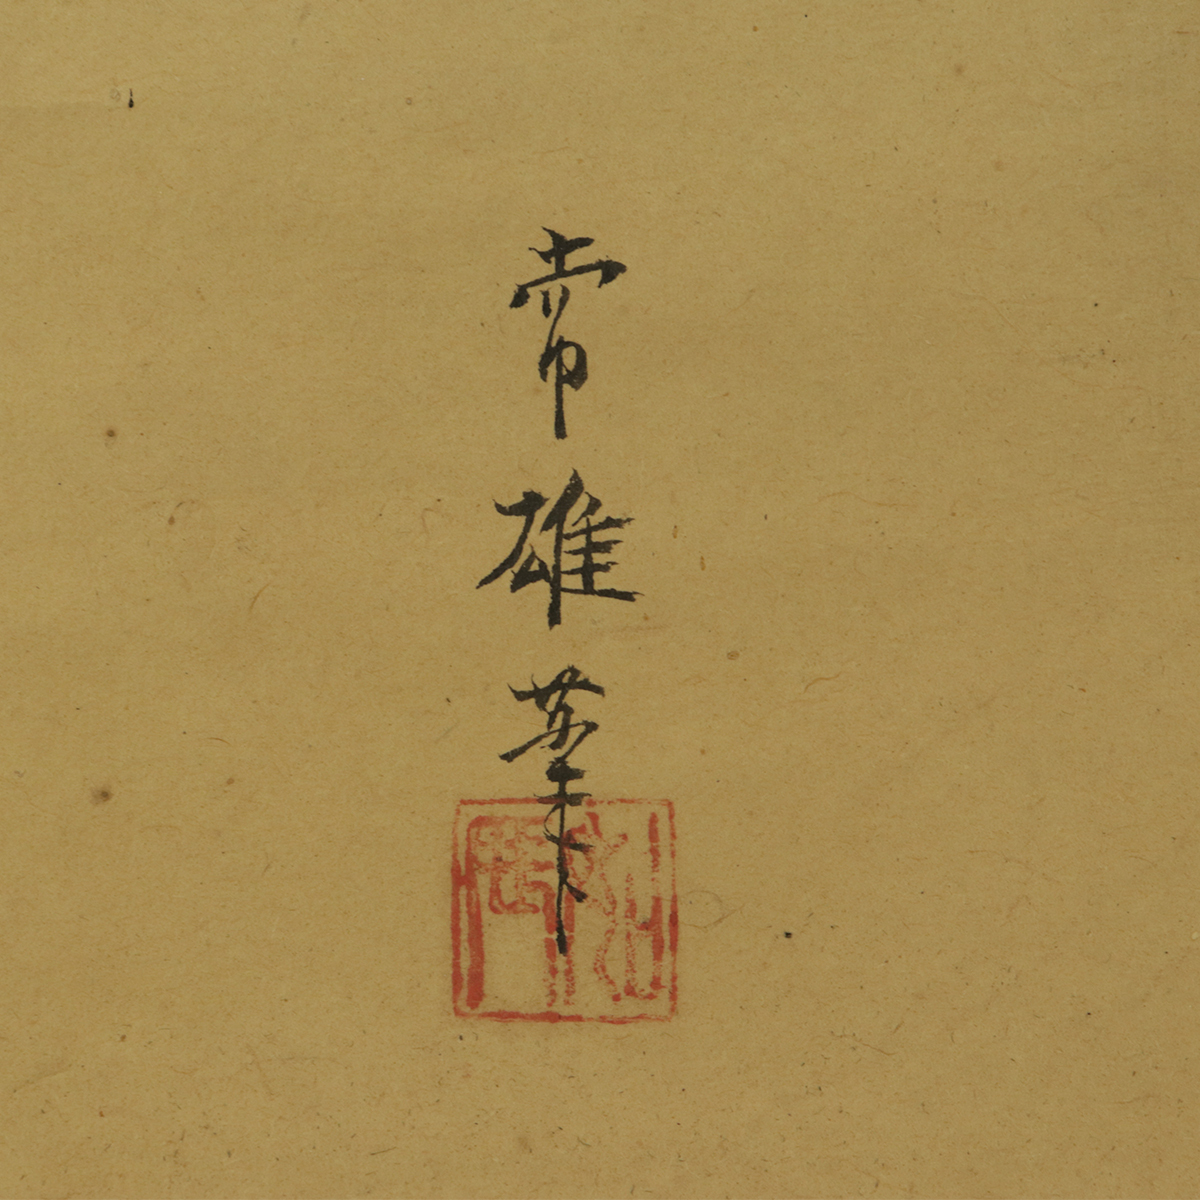 常雄筆